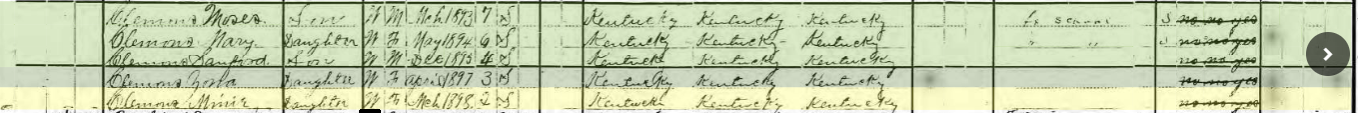 Clemons Moses Son W M Mch 1893 7 S Kentucky Kentucky Kentucky School S no no yes
Clemons Mary Daughter W F May 1894 6 S Kentucky Kentucky Kentucky " " S no no yes
Clemons Sanford Son W M Dec 1895 4 S Kentucky Kentucky Kentucky no no yes
Clemons Daughter W F April 1897 3 S Kentucky Kentucky Kentucky no no yes
Clemons Minie Daughter W F Mch 1898 2 S Kentucky Kentucky Kentucky no no yes